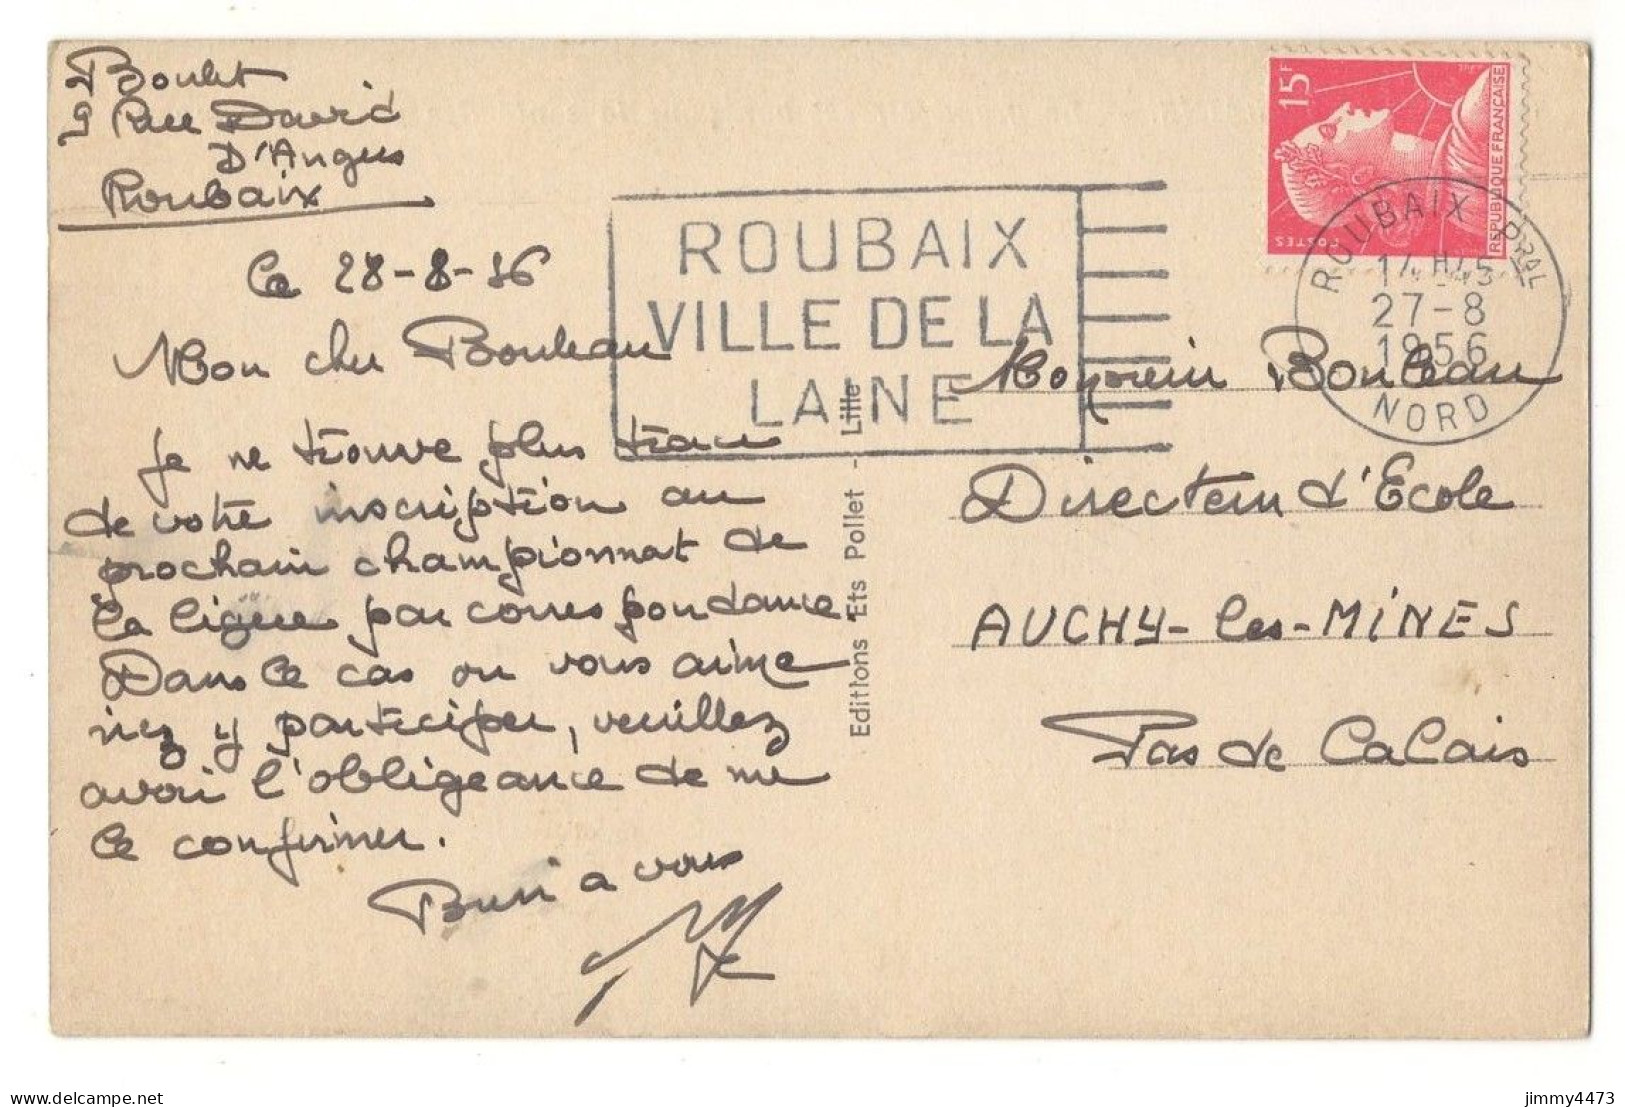 Boulet
Rue David
D'Angers
Roubaix
Le 28-8-56
Mon cher Bouleau
je ne trouve plus trace
de votre inscription au
prochain championnat de
la ligue par correspondance
Dans le cas ou vous aime
riez y participer, veuillez
avoir l'obligeance de me
le confirmer.
Bien a vous
ROUBAIX
VILLE DE LA
LAINE
Editions Ets Pollet - Lille
15F
POSTES
REPUBLIQUE FRANÇAISE
ROUBAIX PRAL
14 H45
27-8
1956
NORD
Monsieur Bouleau
Directeur d'Ecole
AUCHY-les-MiNES
Pas de Calais
jimmy4473 @ delcampe